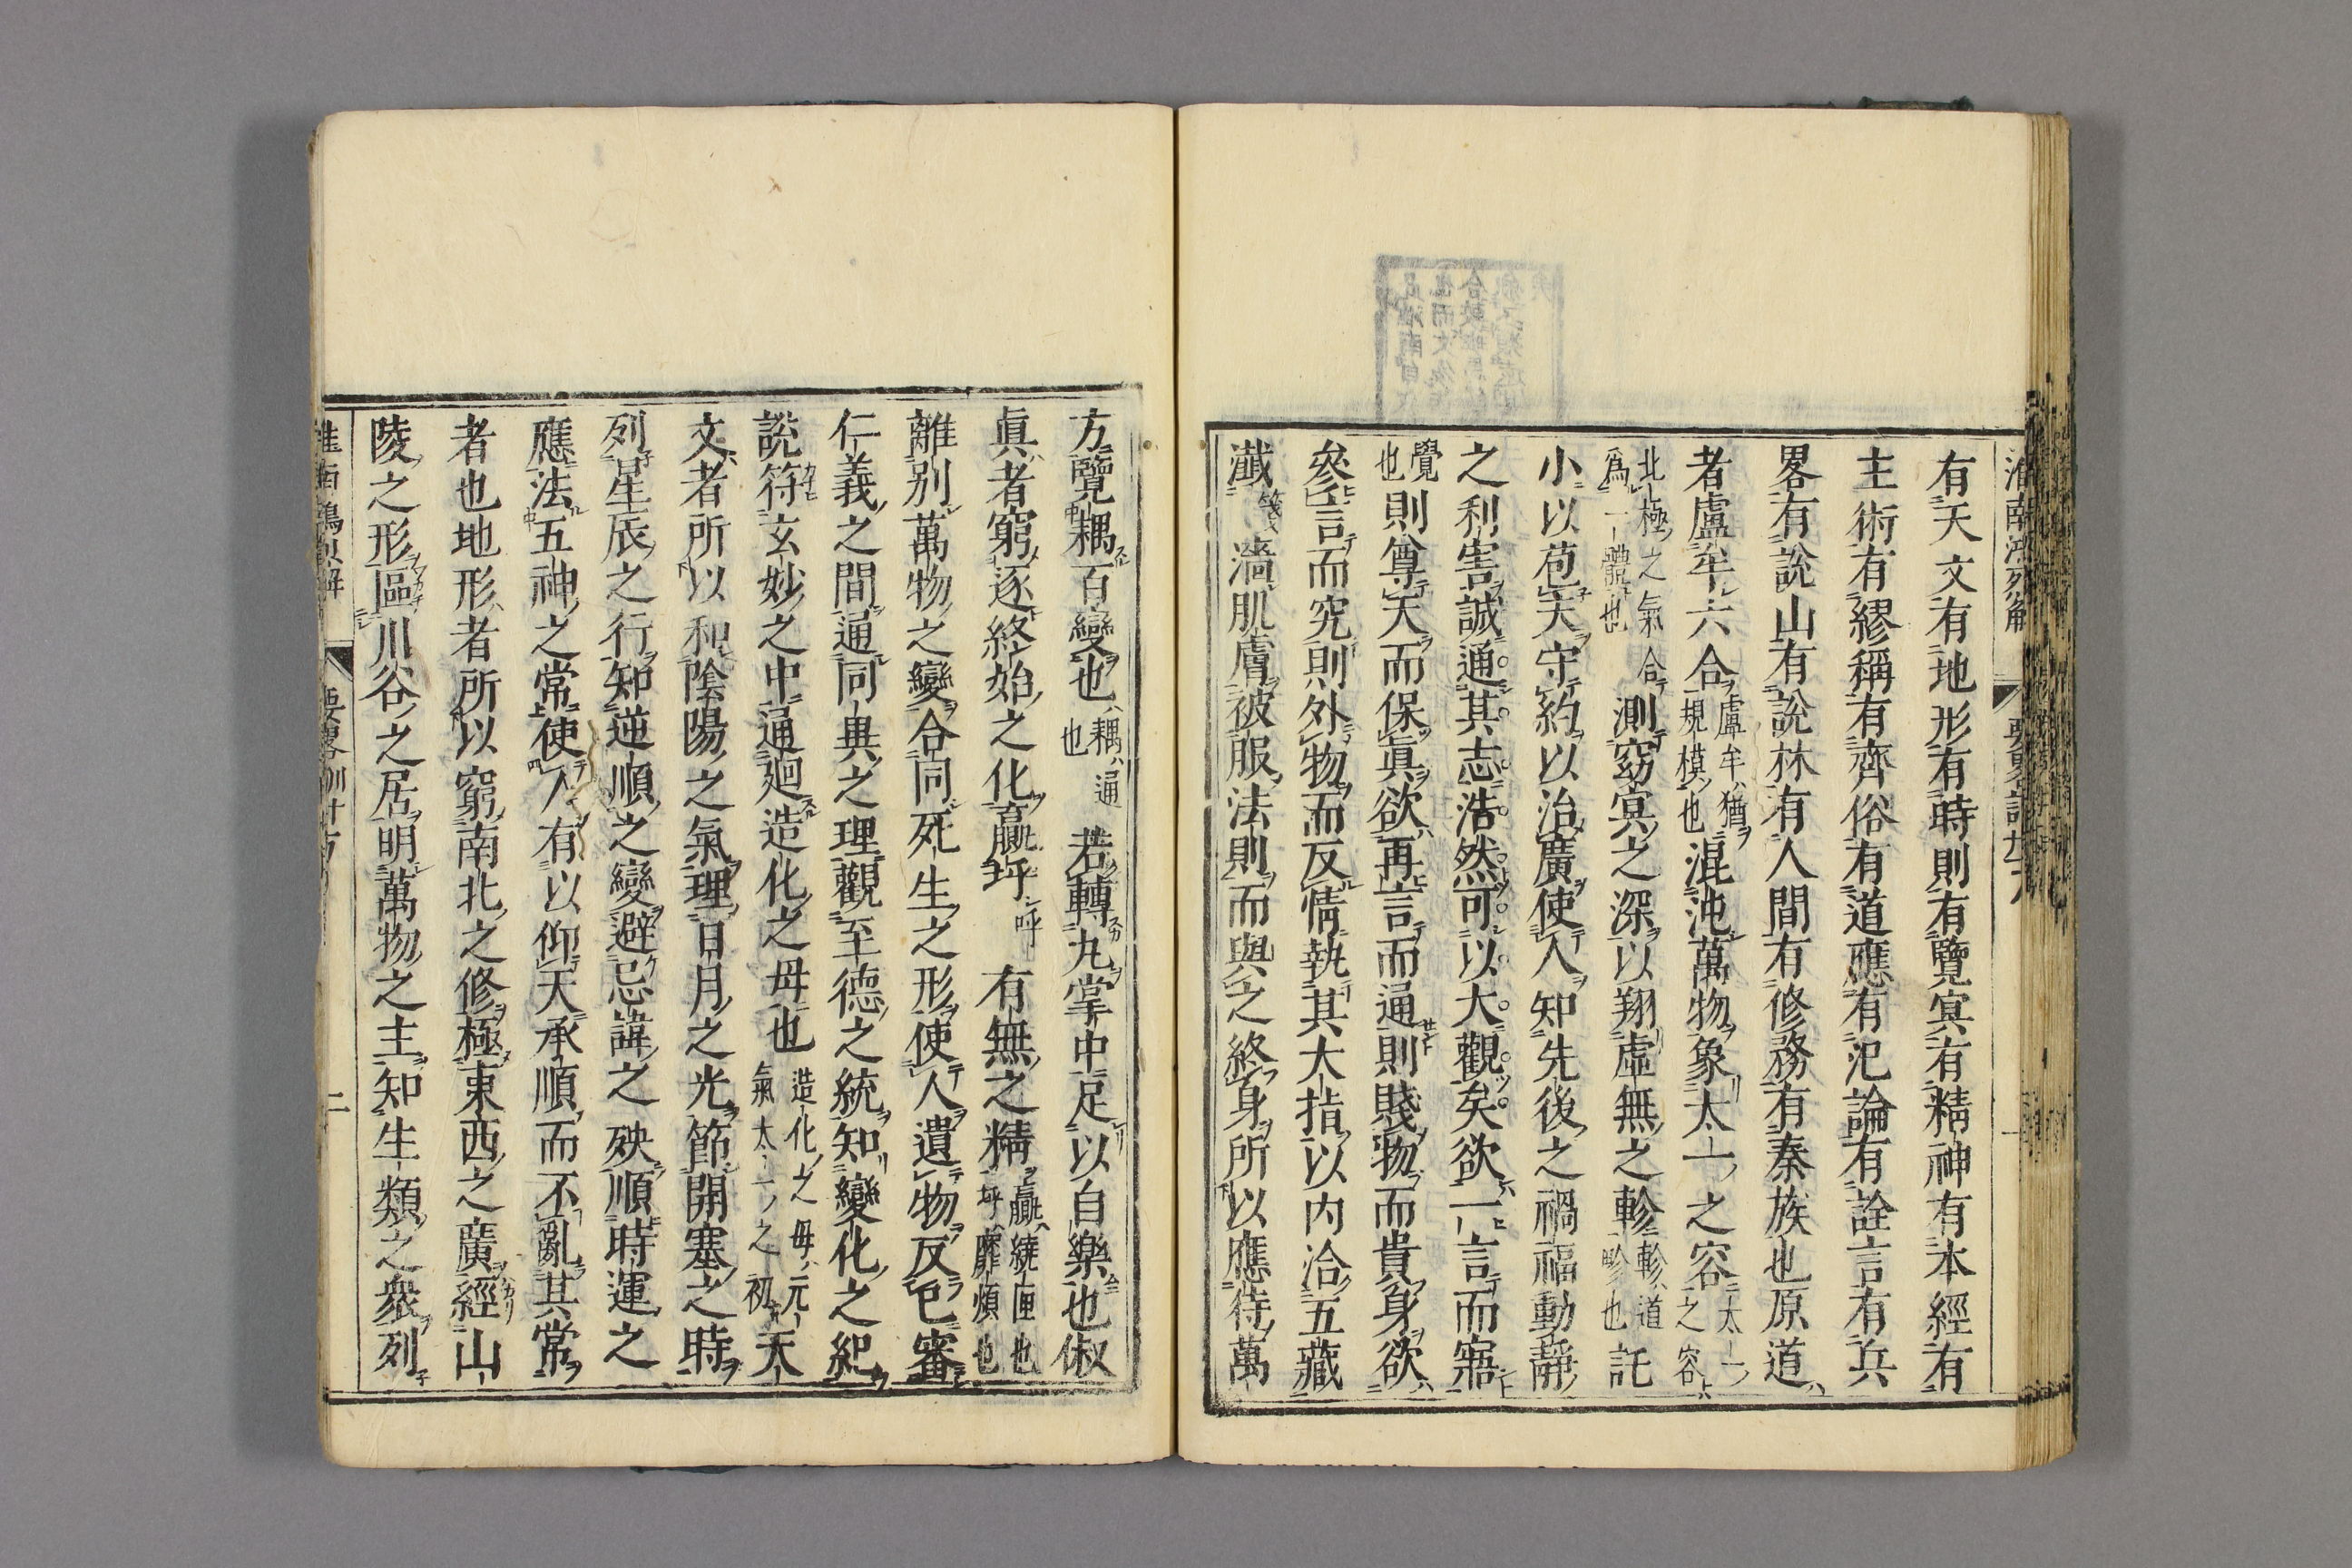 有天文有地形有時則有覽冥有精神有本經有
主術有繆稱有齊俗有道應有氾論有詮言有兵
畧有說山有說林有人間有修務有泰族也原道
者盧牟六合盧牟猶規模也混沌萬物象太一之容太一之容
北極之氣合爲一體也測窈冥之深以翔虛無之軫軫道畛也託
小以苞天守約以治廣使人知先後之禍福動靜
之利害誠通其志浩然可以大觀矣欲一言而寤
覺也則尊天而保眞欲再言而通則賤物而貴身欲
參言而究則外物而反情執其大指以内洽五藏
瀸濇肌膚被服法則而與之終身所以應待萬
方覽耦百變也耦通也若轉丸掌中足以自樂也俶
眞者窮逐終始之化嬴垀呼有無之精嬴繞匝也垀靡煩也
離别萬物之變合同死生之形使人遺物反已審
仁義之間通同異之理觀至德之統知變化之紀
說符玄妙之中通廻造化之毋也造化之毋元氣太一之初天
文者所以和陰陽之氣理日月之光節開塞之時
列星辰之行知逆順之變避忌諱之殃順時運之
應法五神之常使人有以仰天承順而不亂其常
者也地形者所以窮南北之修極東西之廣經山
陵之形區川谷之居明萬物之主知生類之衆列
二